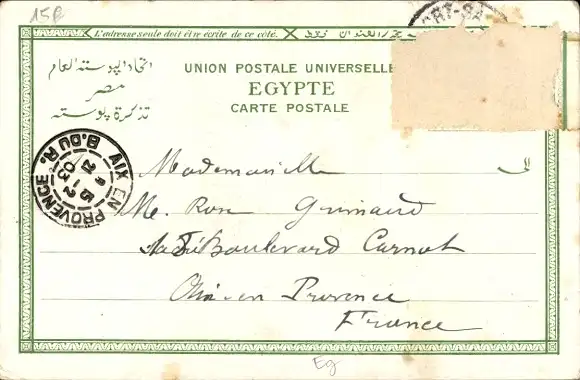 15f
L'adresse seule doit être écrite de ce côté.
UNION POSTALE UNIVERSELLE
EGYPTE
CARTE POSTALE
اتحاد البوستة العام
مصر
تذكرة بوستة
PORT-SA
AIX EN PROVENCE
B. DU R.
03
Mademoiselle
M. Rose Guinaud
Boulevard Carnot
Aix en Provence
France
Eg